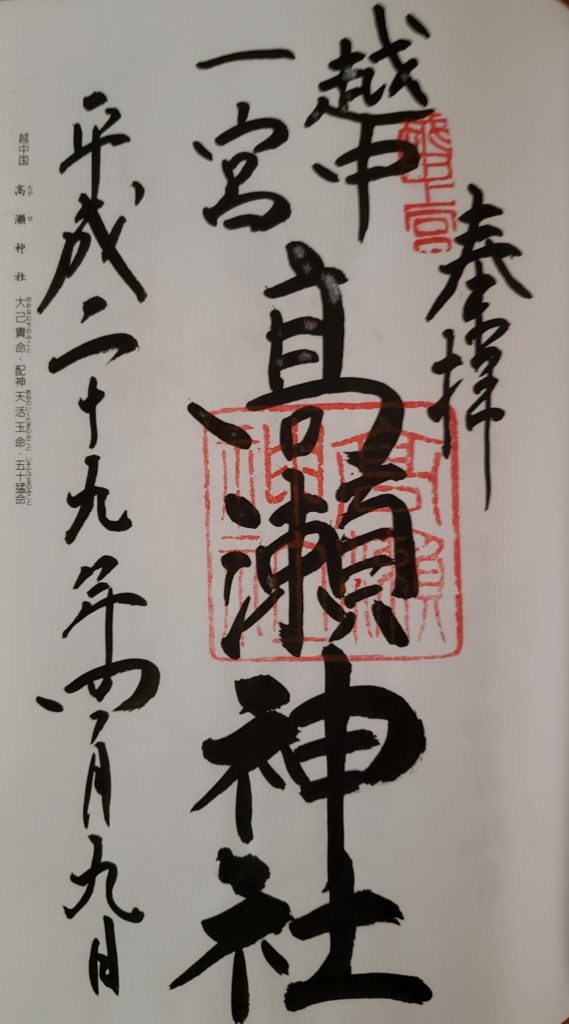 奉拝
越中
一宮
越中一宮
高瀬神社
高瀬神社
平成二十九年四月九日
越中国 高瀬神社 大己貴命・配神 天活玉命・五十猛命